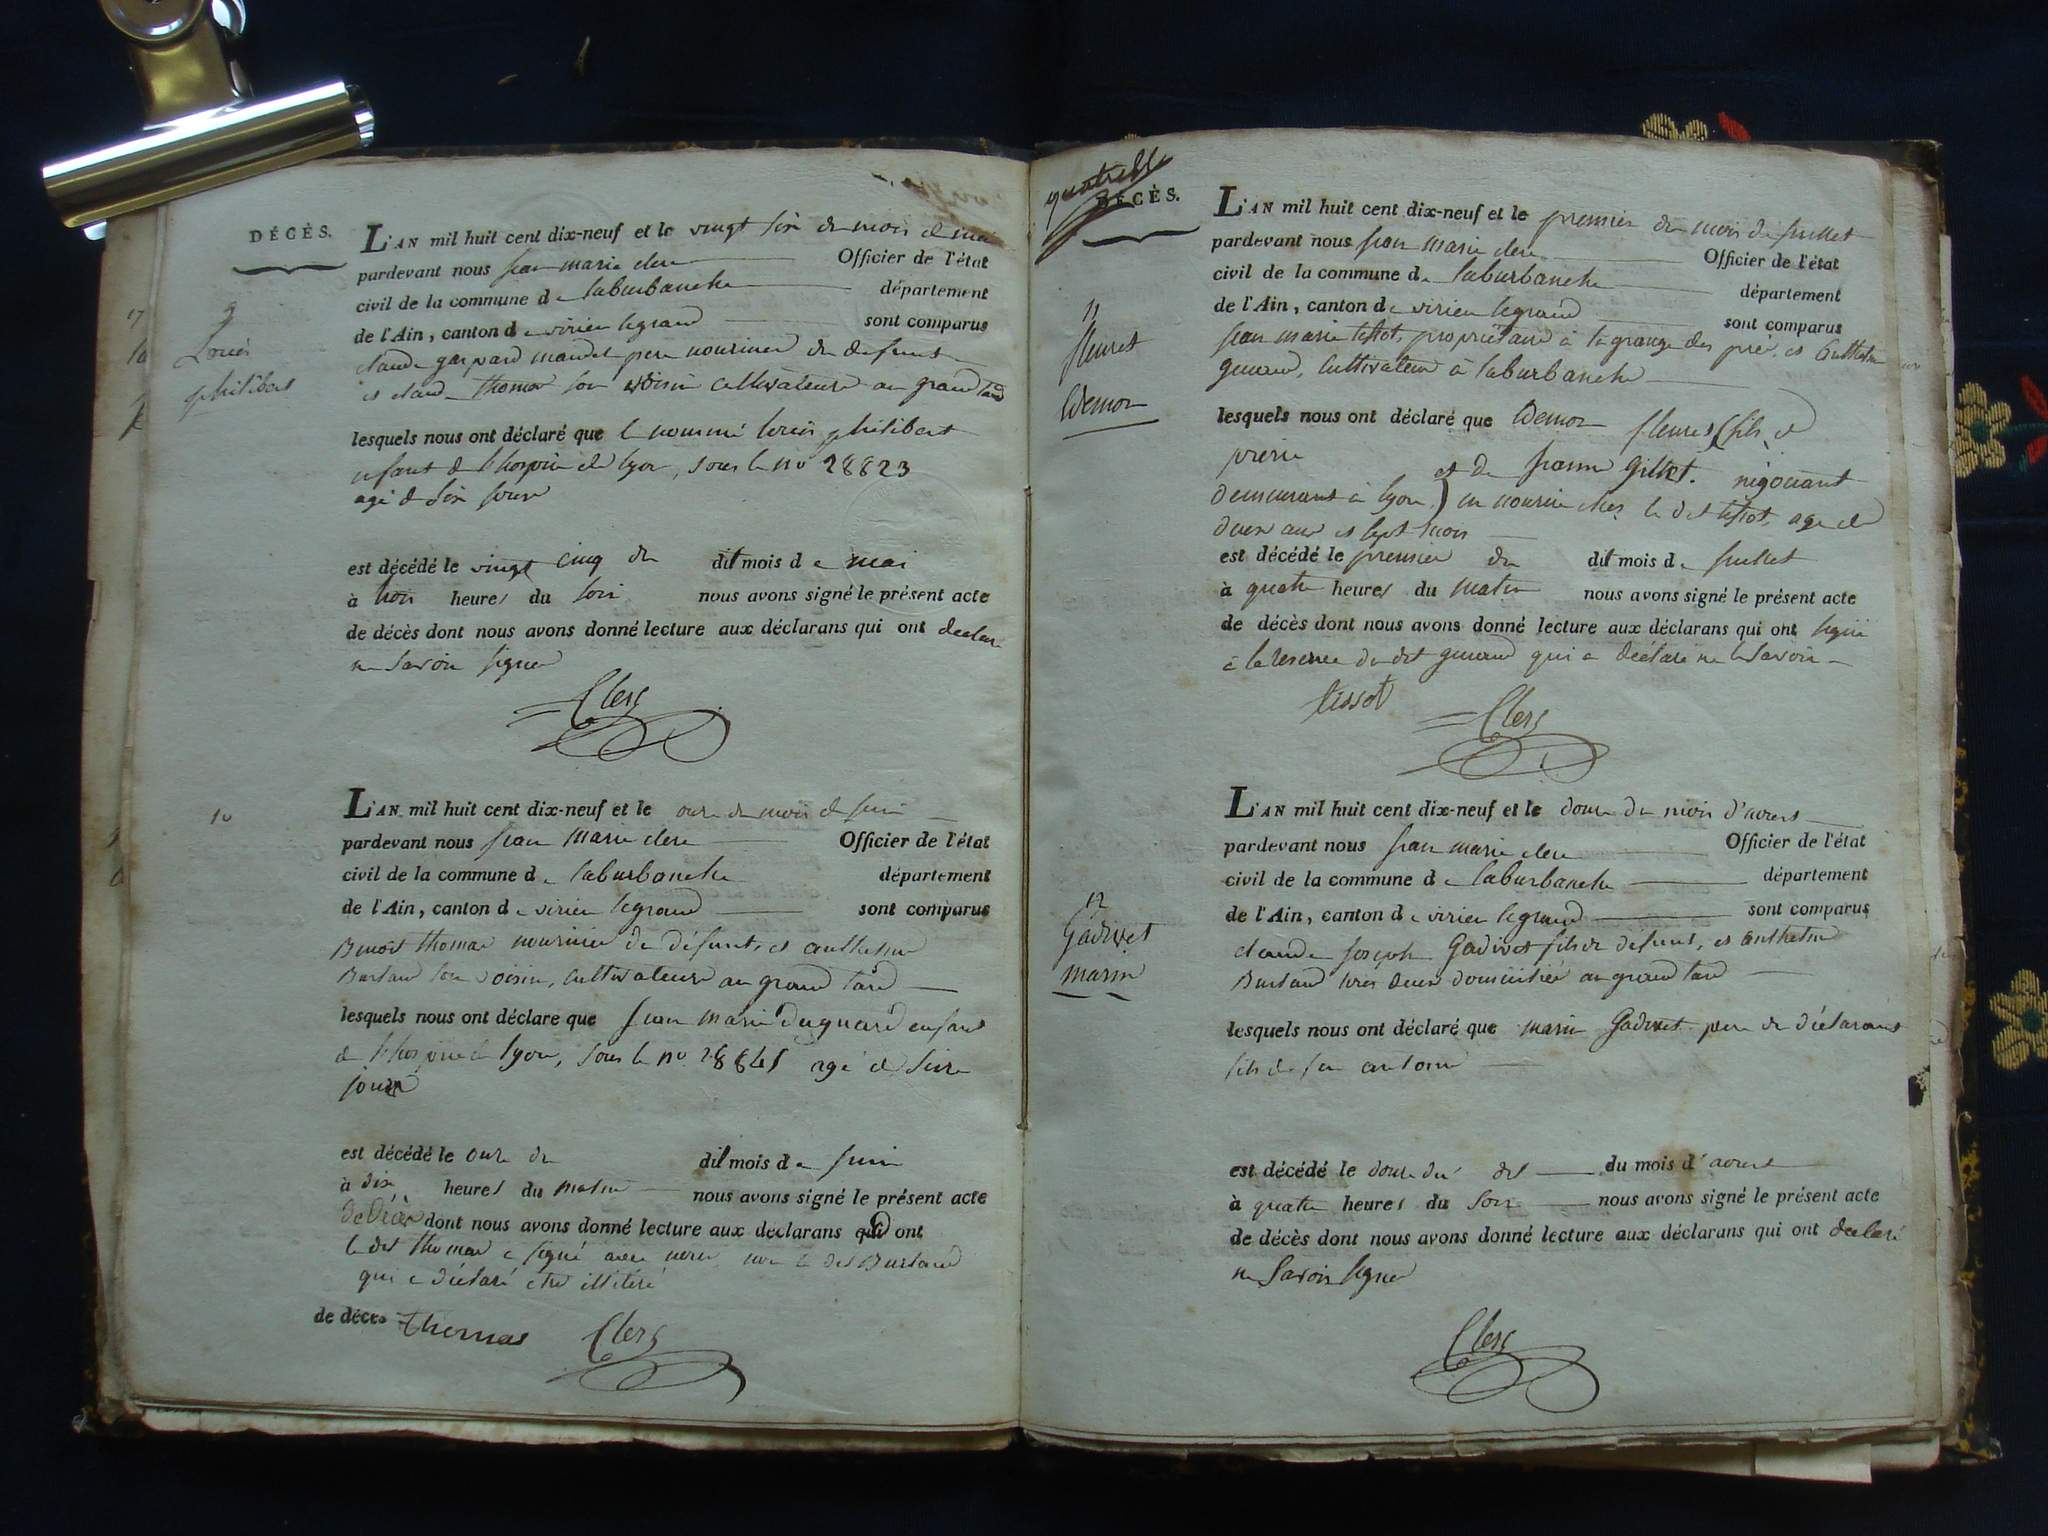 DÉCÈS.
L'AN mil huit cent dix-neuf et le vingt six du mois de mai
pardevant nous jean marie clerc Officier de l'état
civil de la commune de laburbanche département
de l'Ain, canton de virieu legrand sont comparus
claude gaspard mandet pere nouricier du defunt
et claude thomas son voisin cultivateurs au grand tard
9
Louis
philibert
lesquels nous ont déclaré que le nommé louis philibert
enfant de l'hospice de lyon, sous le no 28823
agé de six jours
est décédé le vingt cinq du dit mois de mai
à trois heures du soir nous avons signé le présent acte
de décès dont nous avons donné lecture aux déclarans qui ont declaré
ne savoir signer
Clerc
10
L'AN mil huit cent dix-neuf et le onze du mois de juin
pardevant nous jean marie clerc Officier de l'état
civil de la commune de laburbanche département
de l'Ain, canton de virieu legrand sont comparus
Benoit thomas nouricier du défunt, et anthelme
Burtand son voisin, cultivateurs au grand tard
lesquels nous ont déclaré que jean marie duguard enfant
de l'hospice de lyon, sous le no 28841 agé de seize
jours
est décédé le onze du dit mois de juin
à dix heures du matin nous avons signé le présent acte
de décès dont nous avons donné lecture aux déclarans qui ont
le dit thomas a signé avec nous, non le dit Burtand
qui a déclaré etre illiteré
de décès
thomas Clerc
quatrieme
DÉCÈS.
L'AN mil huit cent dix-neuf et le premier du mois de juillet
pardevant nous jean marie clerc Officier de l'état
civil de la commune de laburbanche département
de l'Ain, canton de virieu legrand sont comparus
jean marie tissot, propriétaire à la grange des prés, et anthelme
guerend, cultivateur à laburbanche
11
fleuret
Edemon
lesquels nous ont déclaré que Edemon fleuret (fils de
pierre et de jeanne Gillet. négociant
demeurant à lyon) en nourice chez le dit tissot, agé de
deux ans et sept mois
est décédé le premier du dit mois de juillet
à quatre heures du matin nous avons signé le présent acte
de décès dont nous avons donné lecture aux déclarans qui ont signé
à la reserve du dit guerend qui a déclaré ne le savoir
tissot Clerc
L'AN mil huit cent dix-neuf et le douze du mois d'aoust
pardevant nous jean marie clerc Officier de l'état
civil de la commune de laburbanche département
de l'Ain, canton de virieu legrand sont comparus
12
Gadivet
marin
claude joseph Gadivet fils du defunt, et anthelme
Burtand tous deux domiciliés au grand tard
lesquels nous ont déclaré que marin Gadivet pere du déclarant
fils de feu antoine
est décédé le douze du dit du mois d'aoust
à quatre heures du soir nous avons signé le présent acte
de décès dont nous avons donné lecture aux déclarans qui ont declaré
ne savoir signer
Clerc